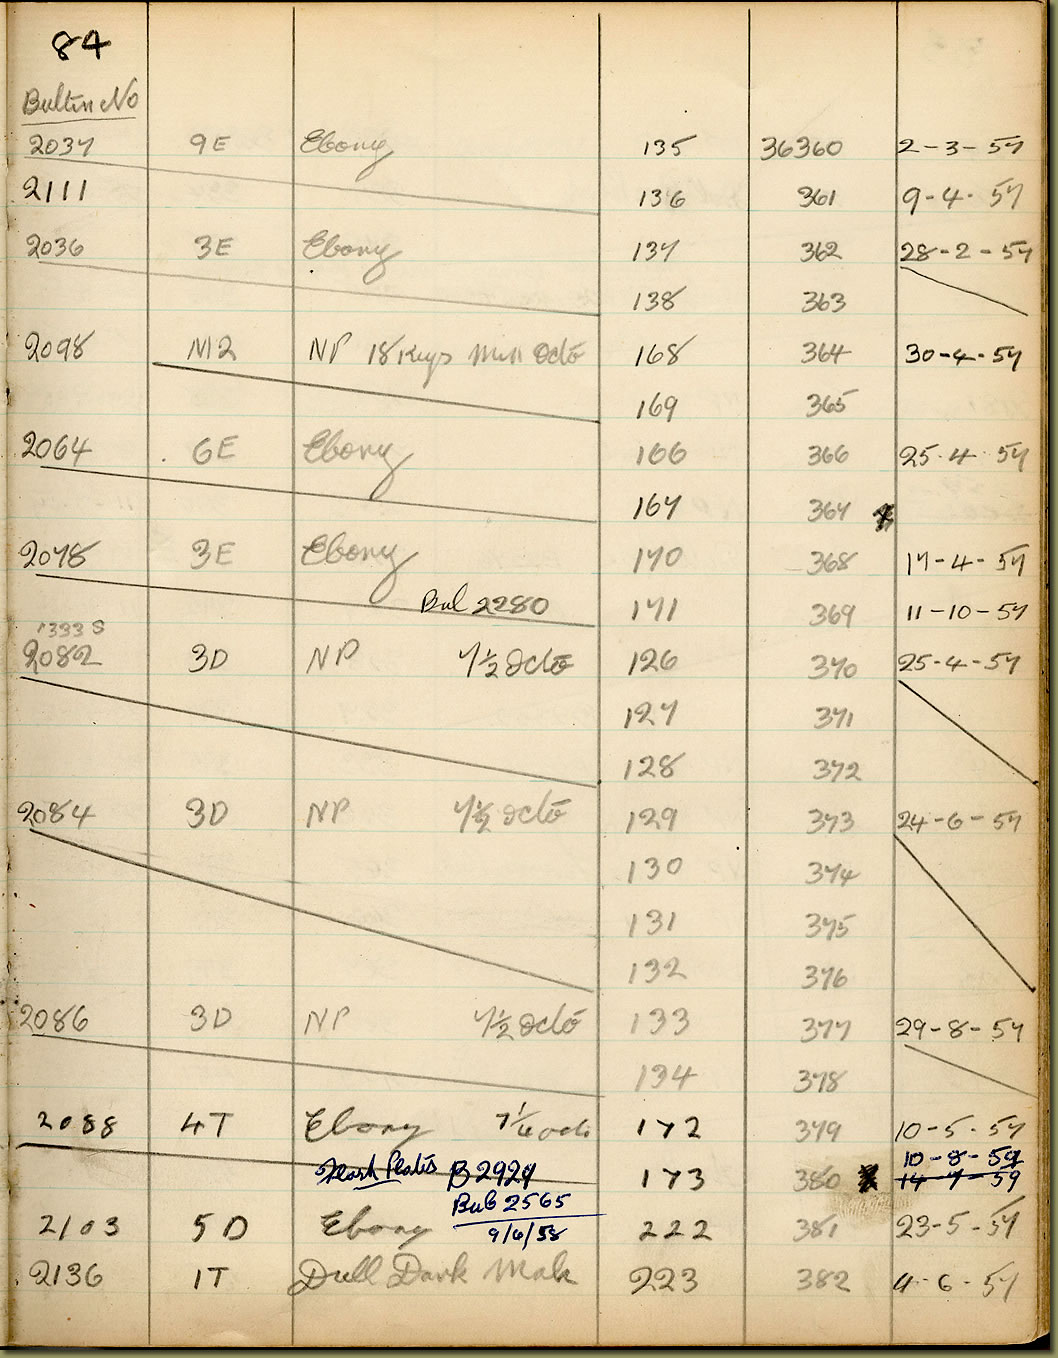 84
Bultin No
2037 9E Ebony 135 36360 2-3-57
2111 136 361 9-4-57
2036 3E Ebony 137 362 28-2-57
138 363
2098 M2 NP 18 Keys Mell Octo 168 364 30-4-57
169 365
2064 6E Ebony 166 366 25.4.57
167 367
2078 3E Ebony 170 368 17-4-57
Bul 2280 171 369 11-10-57
1333 S
2082 3D NP 7½ Octo 126 370 25-4-57
127 371
128 372
2084 3D NP 7½ Octo 129 373 24-6-57
130 374
131 375
132 376
2086 3D NP 7½ Octo 133 377 29-8-57
134 378
2088 4T Ebony 7¼ octo 172 379 10-5-57
10-8-59
Plates B2927 173 380 14-7-59
Bub 2565
2103 5D Ebony 222 381 23-5-57
9/6/58
2136 1T Dull Dark Mah 223 382 4-6-57